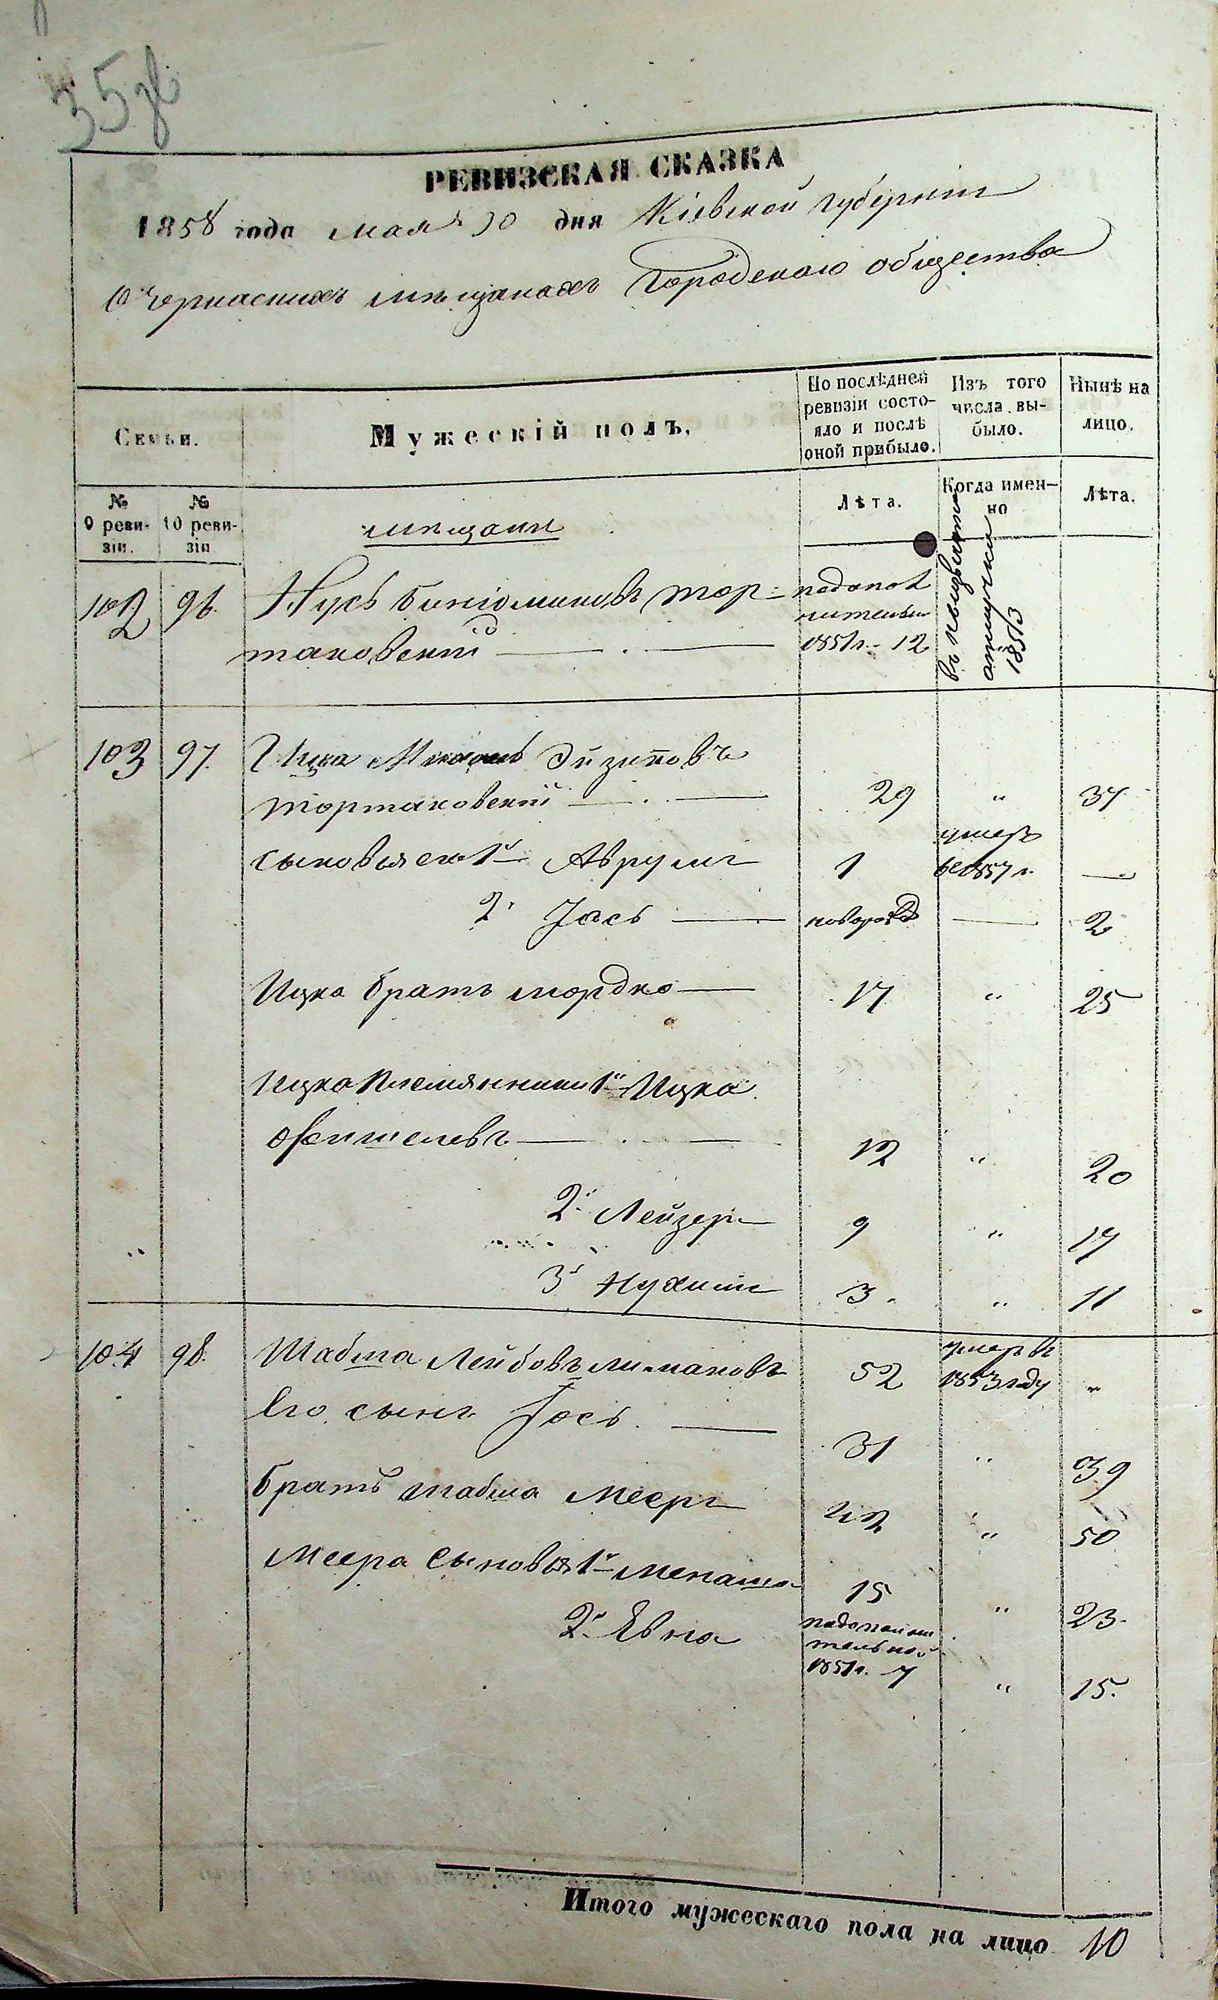 35
РЕВИЗСКАЯ СКАЗКА
1858 года мая 10 дня Кіевской губерніи
О Черкаскихъ мѣщанахъ Городскаго общества
Семьи.
Мужескій полъ.
По послѣдней ревизіи состояло и послѣ оной прибыло.
Изъ того числа выбыло.
Нынѣ на лицо.
№ 9 ревизіи.
№ 10 ревизіи
мѣщани
Лѣта.
Когда именно
Лѣта.
102 96. Нусь Биніоминовъ Тор-
таковскій
подополнительн 1851 г. 12
въ отлучки 1853
103 97. Ицка Эйзиковъ
Тортаковскій 29 " 37
сыновья его 1й Аврумъ 1 умеръ въ 1857 г. —
2й Іось новорожд — 2
Ицка братъ Мордко 17 " 25
Ицка племянники 1й Ицко
Фишелевъ 12 " 20
2й Лейзеръ 9 " 17
3й Нухимъ 3 " 11
104 98. Шабша Лейбовъ Лимановъ 52 умеръ въ 1853 году "
Его сынъ Іось 31 " 39
Братъ Шабша Мееръ 42 " 50
Меера сыновья 1й Менаша 15 " 23
2й Евна подополнительной 1851 г. 7 " 15.
Итого мужескаго пола на лицо 10